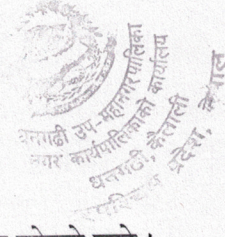 धनगढी उप-महानगरपालिका
नगर कार्यपालिकाको कार्यालय
धनगढी, कैलाली
प्रदेश, नेपाल